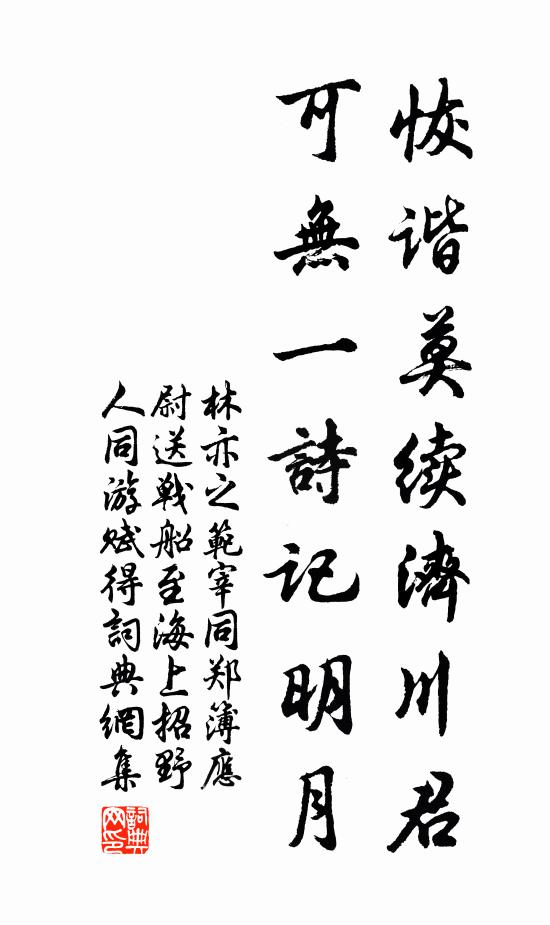 恢谐莫续濟川君
可無一詩记明月
林亦之範宰同郑簿應
尉送戦船至海上招野
人同游赋得詞典網集
詞典网印